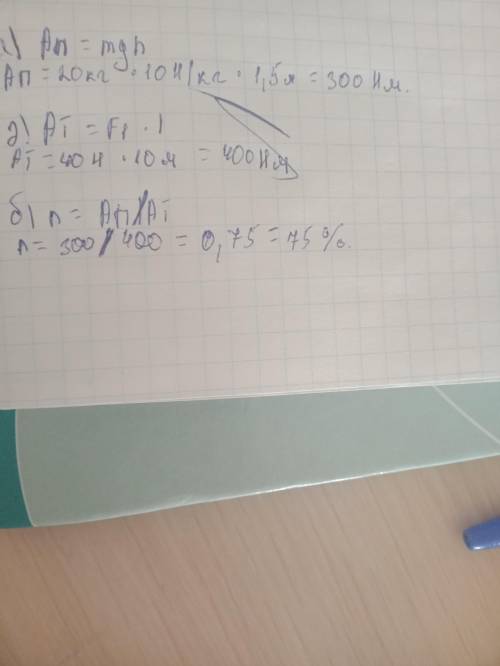 ) Ап = mgh
Ап = 20кг · 10Н/кг · 1,5м = 300 Нм.
д) Аī = F1 · l
Аī = 40Н · 10м = 400Нм
б) n = Ап/Аī
n = 300/400 = 0,75 = 75%.